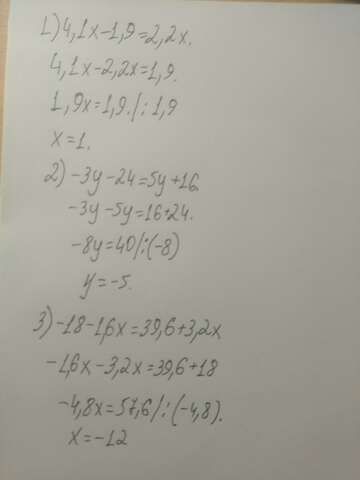 1) 4,1x-1,9=2,2x.
4,1x-2,2x=1,9.
1,9x=1,9./:1,9
x=1.
2) -3y-24=5y+16
-3y-5y=16+24.
-8y=40/:(-8)
y=-5.
3) -18-1,6x=39,6+3,2x
-1,6x-3,2x=39,6+18
-4,8x=57,6/:(-4,8).
x=-12